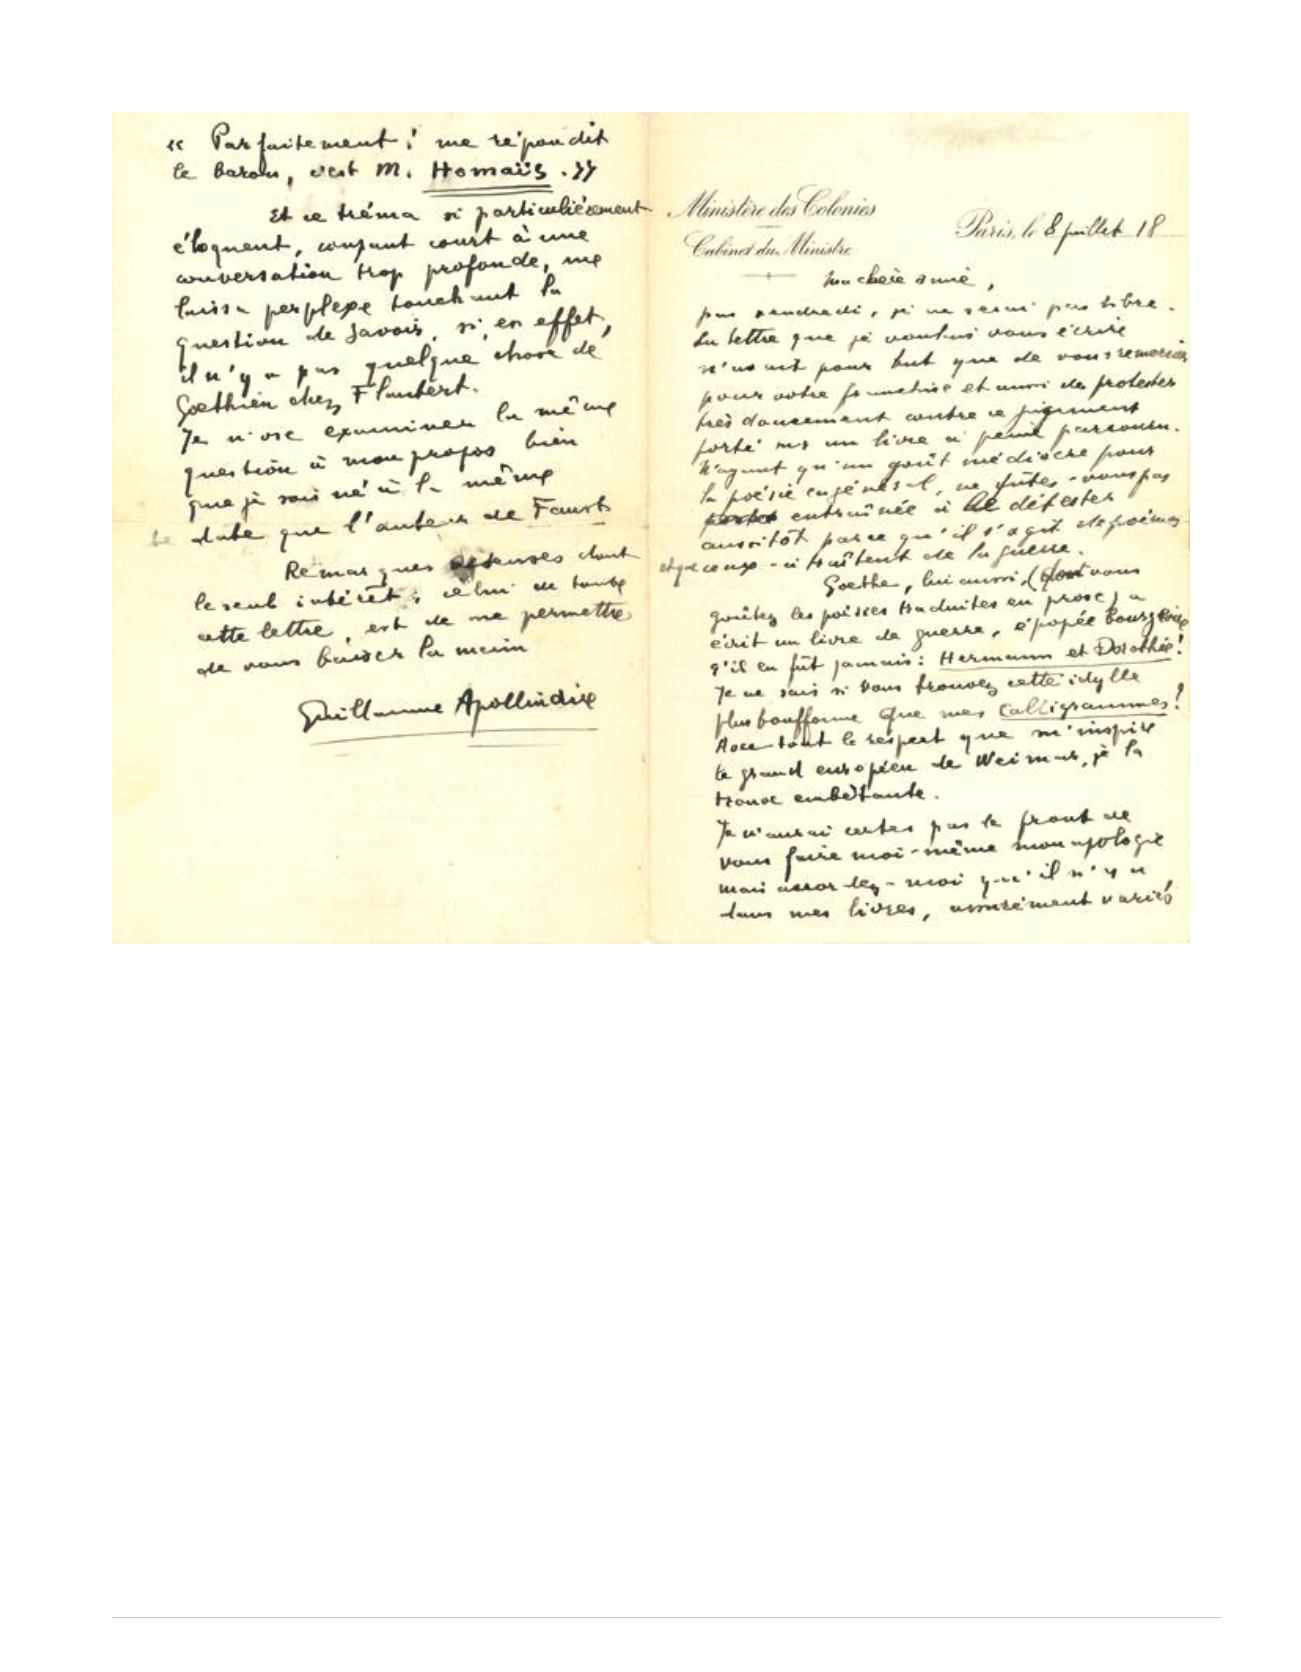 Ministère des Colonies
Cabinet du Ministre
Paris, le 8 juillet 18
Ma chère amie,
pas vendredi, je ne serai pas libre.
La lettre que je voulus vous écrire
n'avait pour but que de vous remercier
pour votre franchise et aussi de protester
très doucement contre ce jugement
porté sur un livre à peine parcouru.
N'ayant qu'un goût médiocre pour
la poésie en général, ne fûtes-vous pas
entraînée à le détester
aussitôt parce qu'il s'agit de poèmes
et que ceux-ci traitent de la guerre.
Goethe, lui aussi (dont vous
goûtez les poésies traduites en prose) a
écrit un livre de guerre, épopée bourgeoise
s'il en fût jamais : Hermann et Dorothée !
Je ne sais si vous trouvez cette idylle
plus bouffonne que mes Calligrammes ?
Avec tout le respect que m'inspire
le grand européen de Weimar, je la
trouve embêtante.
Je n'aurai certes pas le front de
vous faire moi-même mon apologie
mais accordez-moi qu'il n'y a
dans mes livres, assurément variés
« Parfaitement ! me répondit
le baron, c'est M. Homaüs. »
Et ce tréma si particulièrement
éloquent, coupant court à une
conversation trop profonde, me
laissa perplexe touchant la
question de savoir, si, en effet,
il n'y a pas quelque chose de
Goethien chez Flaubert.
Je n'ose examiner la même
question à mon propos bien
que je sois né à la même
date que l'auteur de Faust.
Remarques oiseuses dont
le seul intérêt, celui de toute
cette lettre, est de me permettre
de vous baiser la main
Guillaume Apollinaire